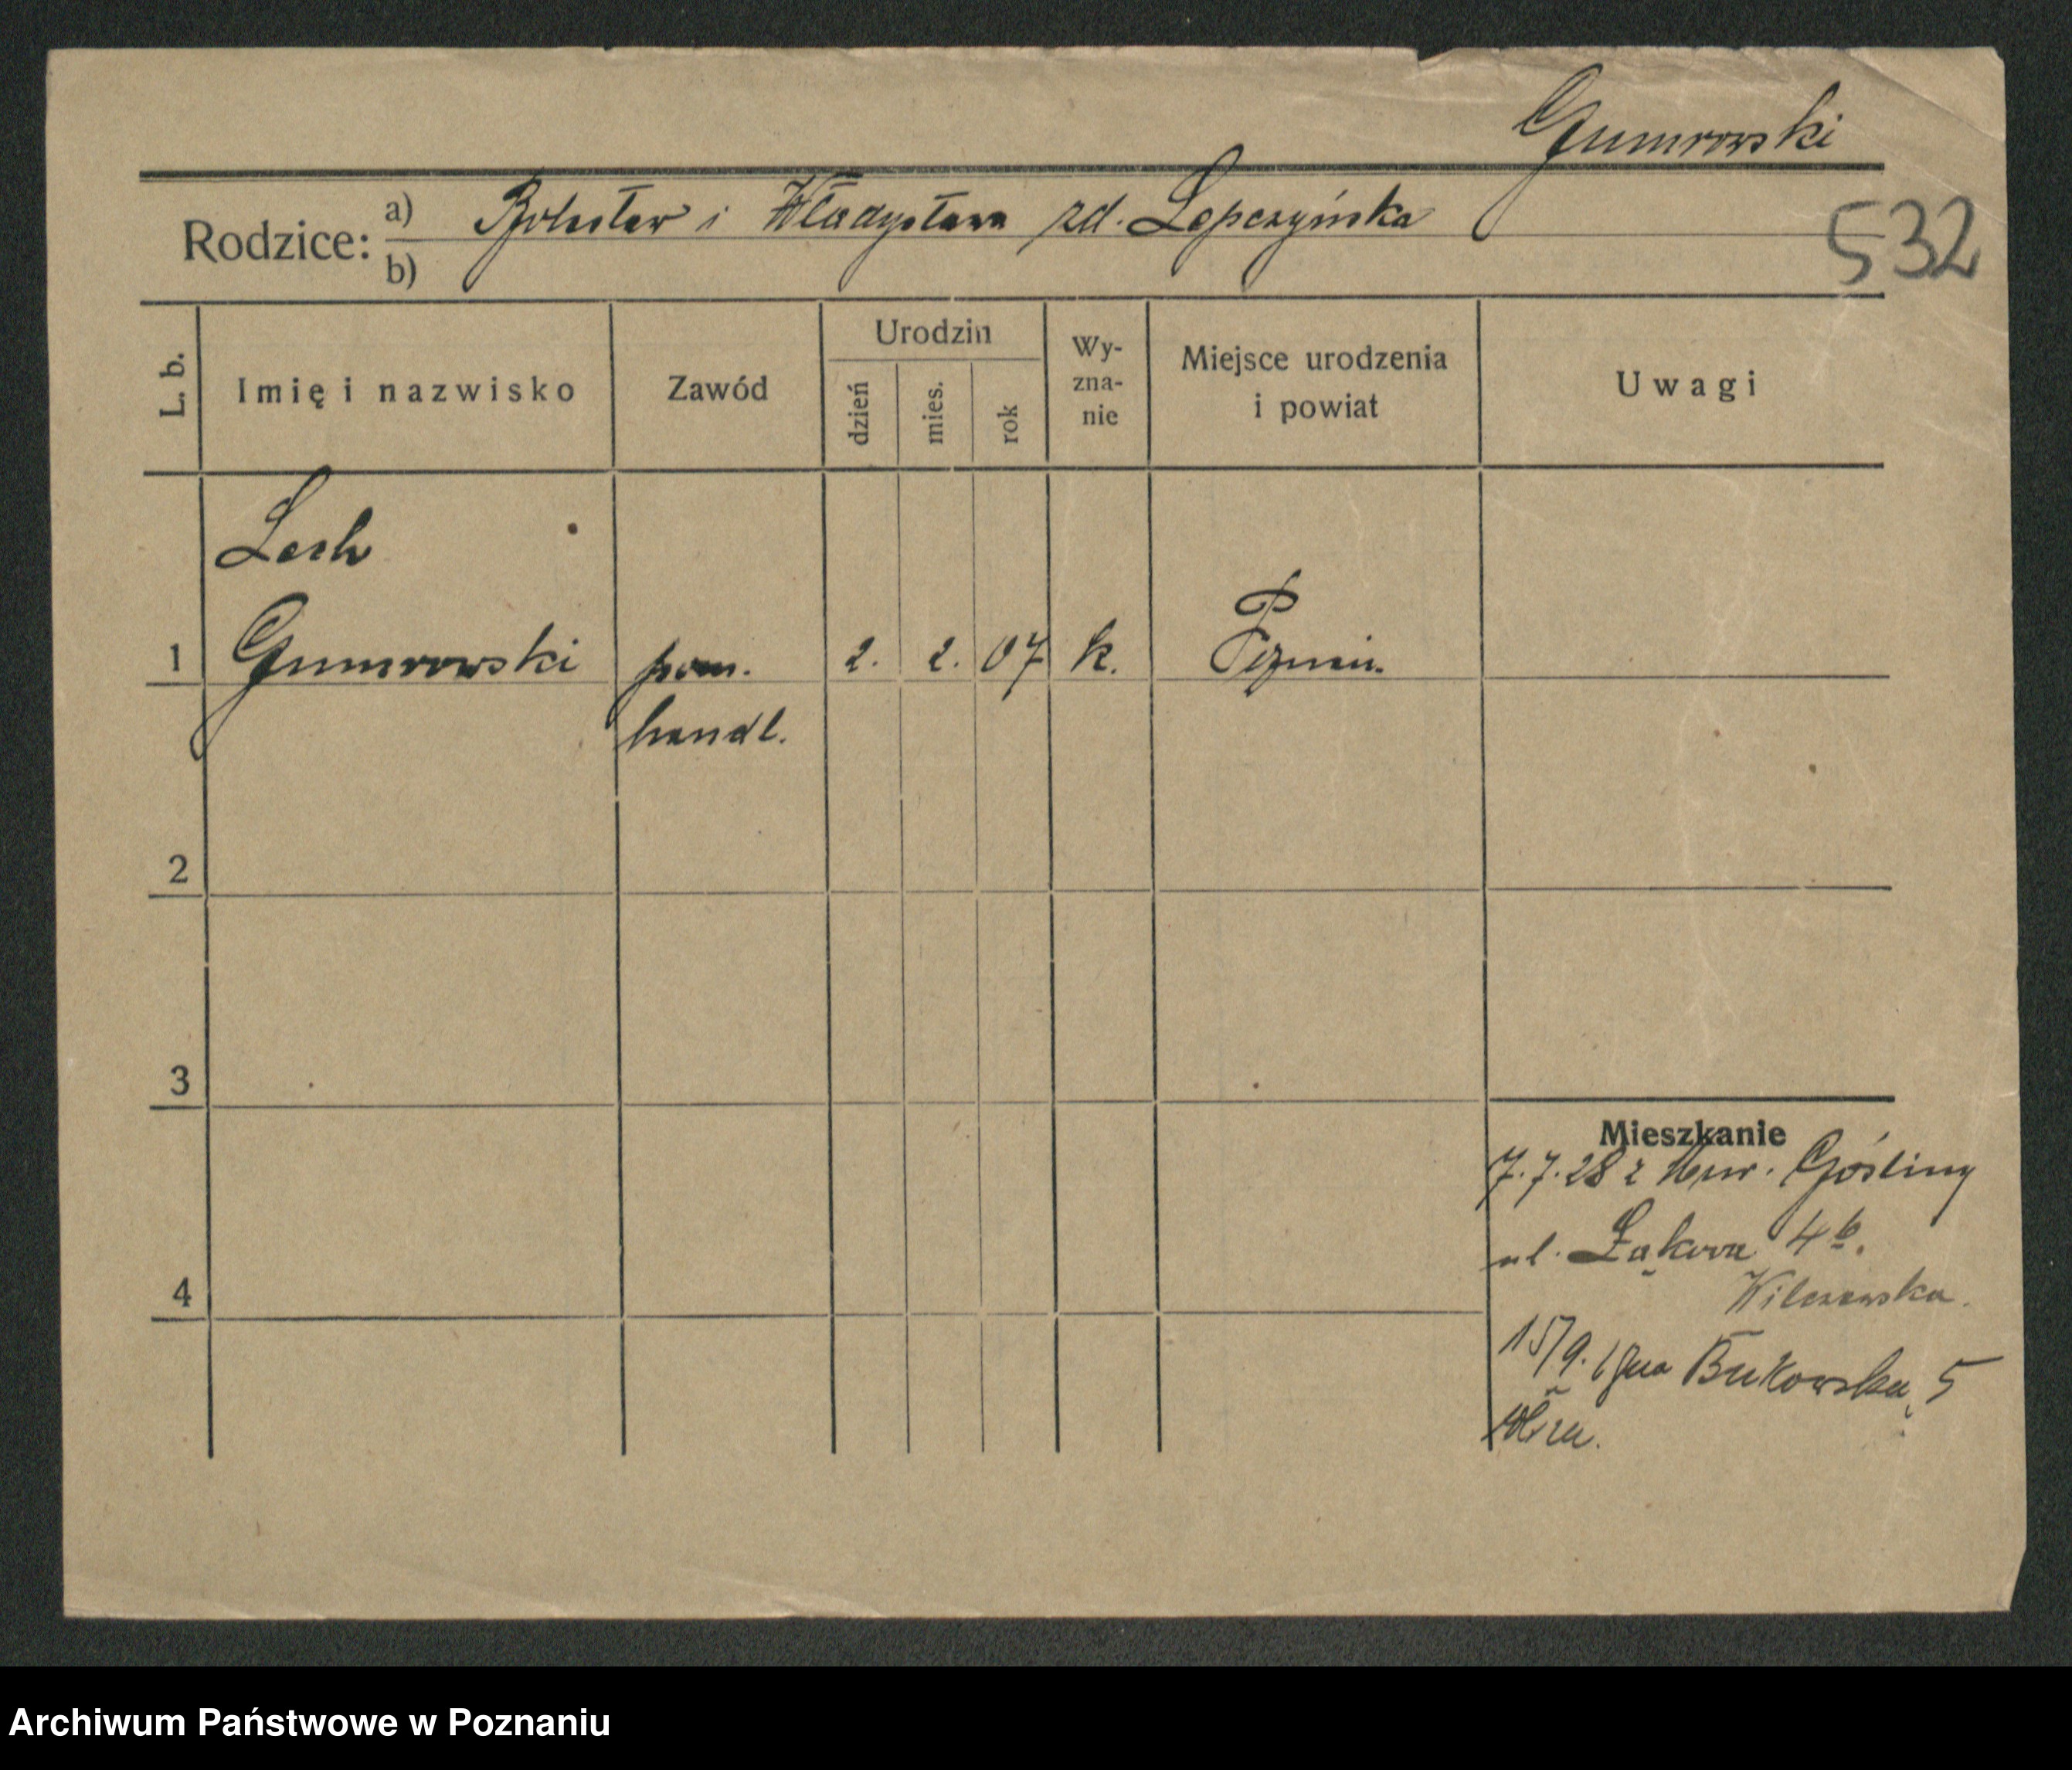 Gumrowski
532
Rodzice: a) Bolesław i Władysława zd. Lopczyńska
b)
L. b. Imię i nazwisko Zawód Urodzin dzień mies. rok Wy-zna-nie Miejsce urodzenia i powiat Uwagi
Lech
1 Gumrowski pom. 2. 2. 07 k. Poznań.
handl.
2
3
Mieszkanie
7.7.28 z Mur. Gośliny
ul. Łąkowa 4b.
4
Wilczewska.
15/9. Bukowska 5
Archiwum Państwowe w Poznaniu